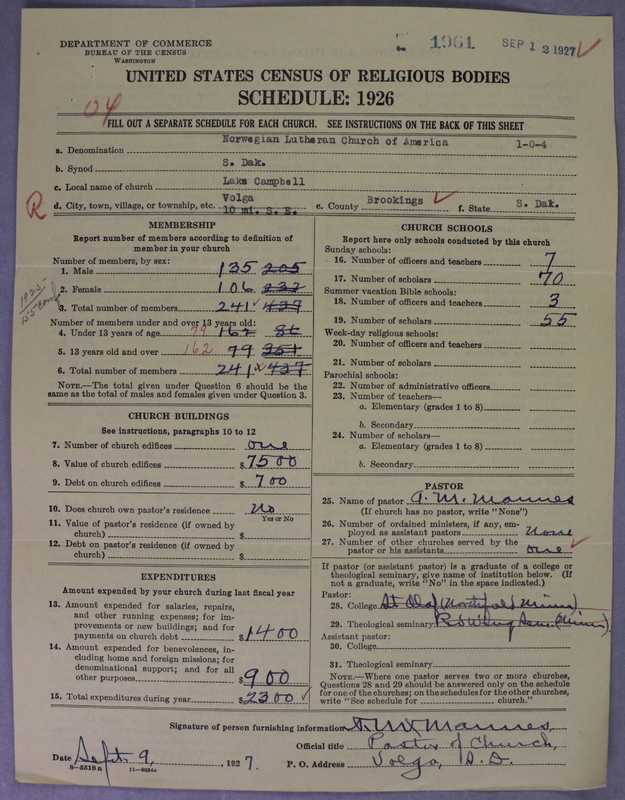 DEPARTMENT OF COMMERCE
BUREAU OF THE CENSUS
WASHINGTON
1961 SEP 12 1927
UNITED STATES CENSUS OF RELIGIOUS BODIES
SCHEDULE: 1926
04
FILL OUT A SEPARATE SCHEDULE FOR EACH CHURCH. SEE INSTRUCTIONS ON THE BACK OF THIS SHEET
a. Denomination Norwegian Lutheran Church of America 1-0-4
b. Synod S. Dak.
c. Local name of church Lake Campbell
R d. City, town, village, or township, etc. Volga 10 mi. S. E. e. County Brookings f. State S. Dak.
MEMBERSHIP
Report number of members according to definition of member in your church
Number of members, by sex:
1. Male 135 205
2. Female 106 232
3. Total number of members 241 437
Number of members under and over 13 years old:
4. Under 13 years of age 79 162 86
5. 13 years old and over 162 79 351
6. Total number of members 241 437
NOTE.—The total given under Question 6 should be the same as the total of males and females given under Question 3.
CHURCH BUILDINGS
See instructions, paragraphs 10 to 12
7. Number of church edifices one
8. Value of church edifices $7500
9. Debt on church edifices $700
10. Does church own pastor's residence No
Yes or No
11. Value of pastor's residence (if owned by church) $
12. Debt on pastor's residence (if owned by church) $
EXPENDITURES
Amount expended by your church during last fiscal year
13. Amount expended for salaries, repairs, and other running expenses; for improvements or new buildings; and for payments on church debt $1400
14. Amount expended for benevolences, including home and foreign missions; for denominational support; and for all other purposes $900
15. Total expenditures during year $2300
CHURCH SCHOOLS
Report here only schools conducted by this church
Sunday schools:
16. Number of officers and teachers 7
17. Number of scholars 70
Summer vacation Bible schools:
18. Number of officers and teachers 3
19. Number of scholars 55
Week-day religious schools:
20. Number of officers and teachers
21. Number of scholars
Parochial schools:
22. Number of administrative officers
23. Number of teachers—
a. Elementary (grades 1 to 8)
b. Secondary
24. Number of scholars—
a. Elementary (grades 1 to 8)
b. Secondary
PASTOR
25. Name of pastor A. M. Mannes
(If church has no pastor, write "None")
26. Number of ordained ministers, if any, employed as assistant pastors None
27. Number of other churches served by the pastor or his assistants one
If pastor (or assistant pastor) is a graduate of a college or theological seminary, give name of institution below. (If not a graduate, write "No" in the space indicated.)
Pastor:
28. College St Olaf (Northfield Minn)
29. Theological seminary Red Wing Sem. (Minn).
Assistant pastor:
30. College
31. Theological seminary
NOTE.—Where one pastor serves two or more churches, Questions 28 and 29 should be answered only on the schedule for one of the churches; on the schedules for the other churches, write "See schedule for church."
Signature of person furnishing information A. M. Mannes
Official title Pastor of Church,
Date Sept. 9, 1927. P. O. Address Volga, S. D.
8—5518 a